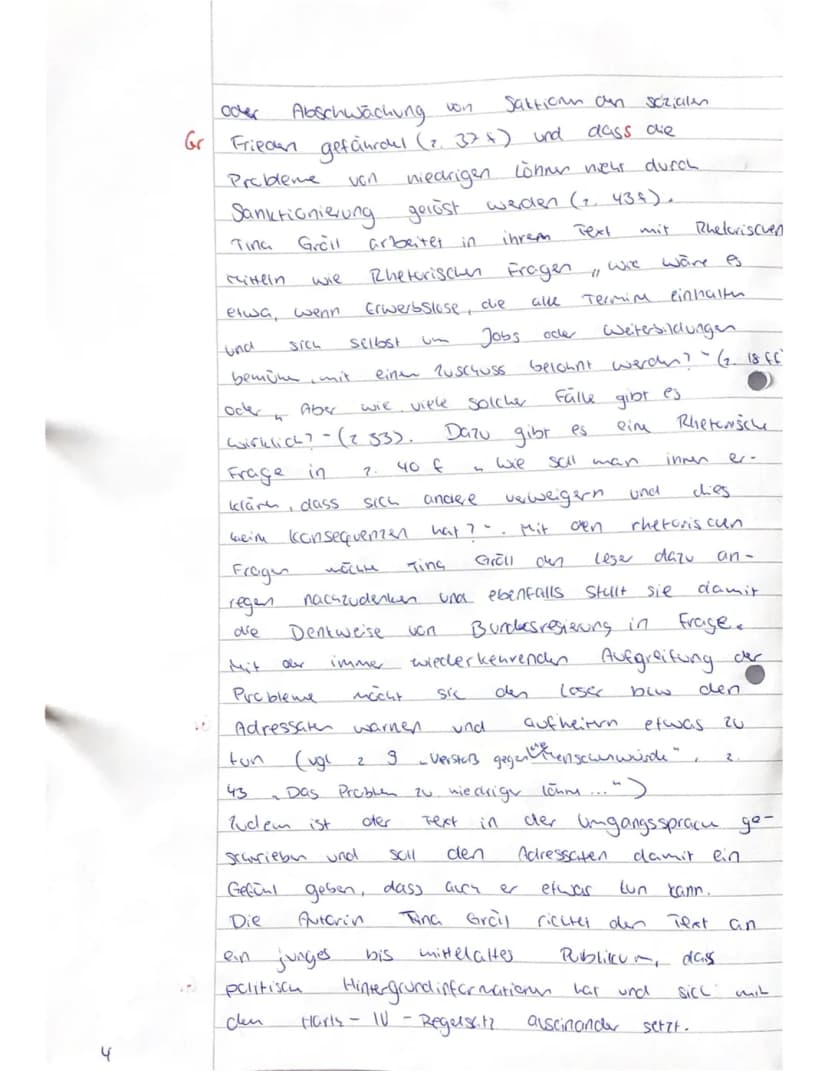 oder Abschwächung von Saktionen den sozialen
Gr Frieden gefährdet (z. 37 f) und dass die
Probleme von niedrigen Löhnen nicht durch
Sanktionierung gelöst werden (z. 43f).
Tina Groll arbeitet in ihrem Text mit Rhetorischen
Mitteln wie Rhetorischen Fragen „wie wäre es
etwa, wenn Erwerbslose, die alle Termine einhalten
und sich selbst um Jobs oder Weiterbildungen
bemühen, mit einem Zuschuss belohnt werden?" (z. 18 ff
oder „Aber wie viele solcher Fälle gibt es
wirklich?" (z 33). Dazu gibt es eine Rhetorische
Frage in z. 40 f „wie soll man ihnen er-
klären, dass sich andere verweigern und dies
keine Konsequenzen hat?". Mit den rhetorischen
Fragen möchte Tina Groll den Leser dazu an-
regen nachzudenken und ebenfalls stellt sie damit
die Denkweise von Bundesregierung in Frage.
Mit der immer wiederkehrenden Aufgreifung der
Probleme möcht sie den Leser bzw den
Adressaten warnen und aufheitern etwas zu
tun (vgl z 9 „Verstoß gegen Menschenwürde", z.
43 „Das Problem zu niedriger Löhne ...")
Zudem ist der Text in der Umgangssprache ge-
schrieben und soll den Adressaten damit ein
Gefühl geben, dass auch er etwas tun kann.
Die Autorin Tina Groll richtet den Text an
ein junges bis mittelaltes Publikum, dass
politisch Hintergrundinformationen hat und sich mit
den Hartz-IV-Regelsatz auseinander setzt.
4